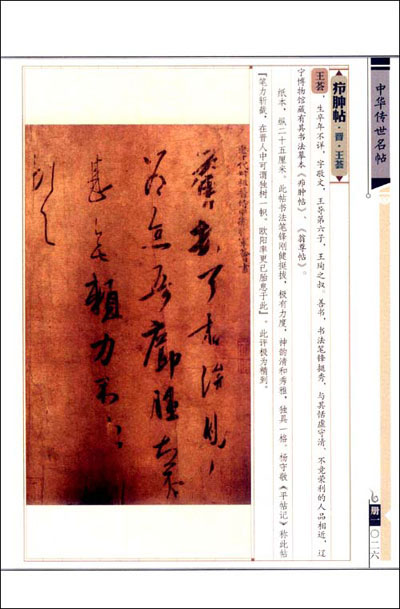 中华传世名帖
疖肿帖·晋·王荟
王荟,生卒年不详,字敬文,王导第六子,王珣之叔。善书,书法笔锋挺秀,与其恬虚守清、不竞荣利的人品相近。辽
宁博物馆藏有其书法摹本《疖肿帖》、《翁尊帖》。
纸本,纵二十五厘米。此帖书法笔锋刚健挺拔,极有力度,神韵清和秀雅,独具一格。杨守敬《平帖记》称此帖
『笔力斩截,在晋人中可谓独树一帜。欧阳率更已胎息于此』。此评极为精到。
册一 〇二六